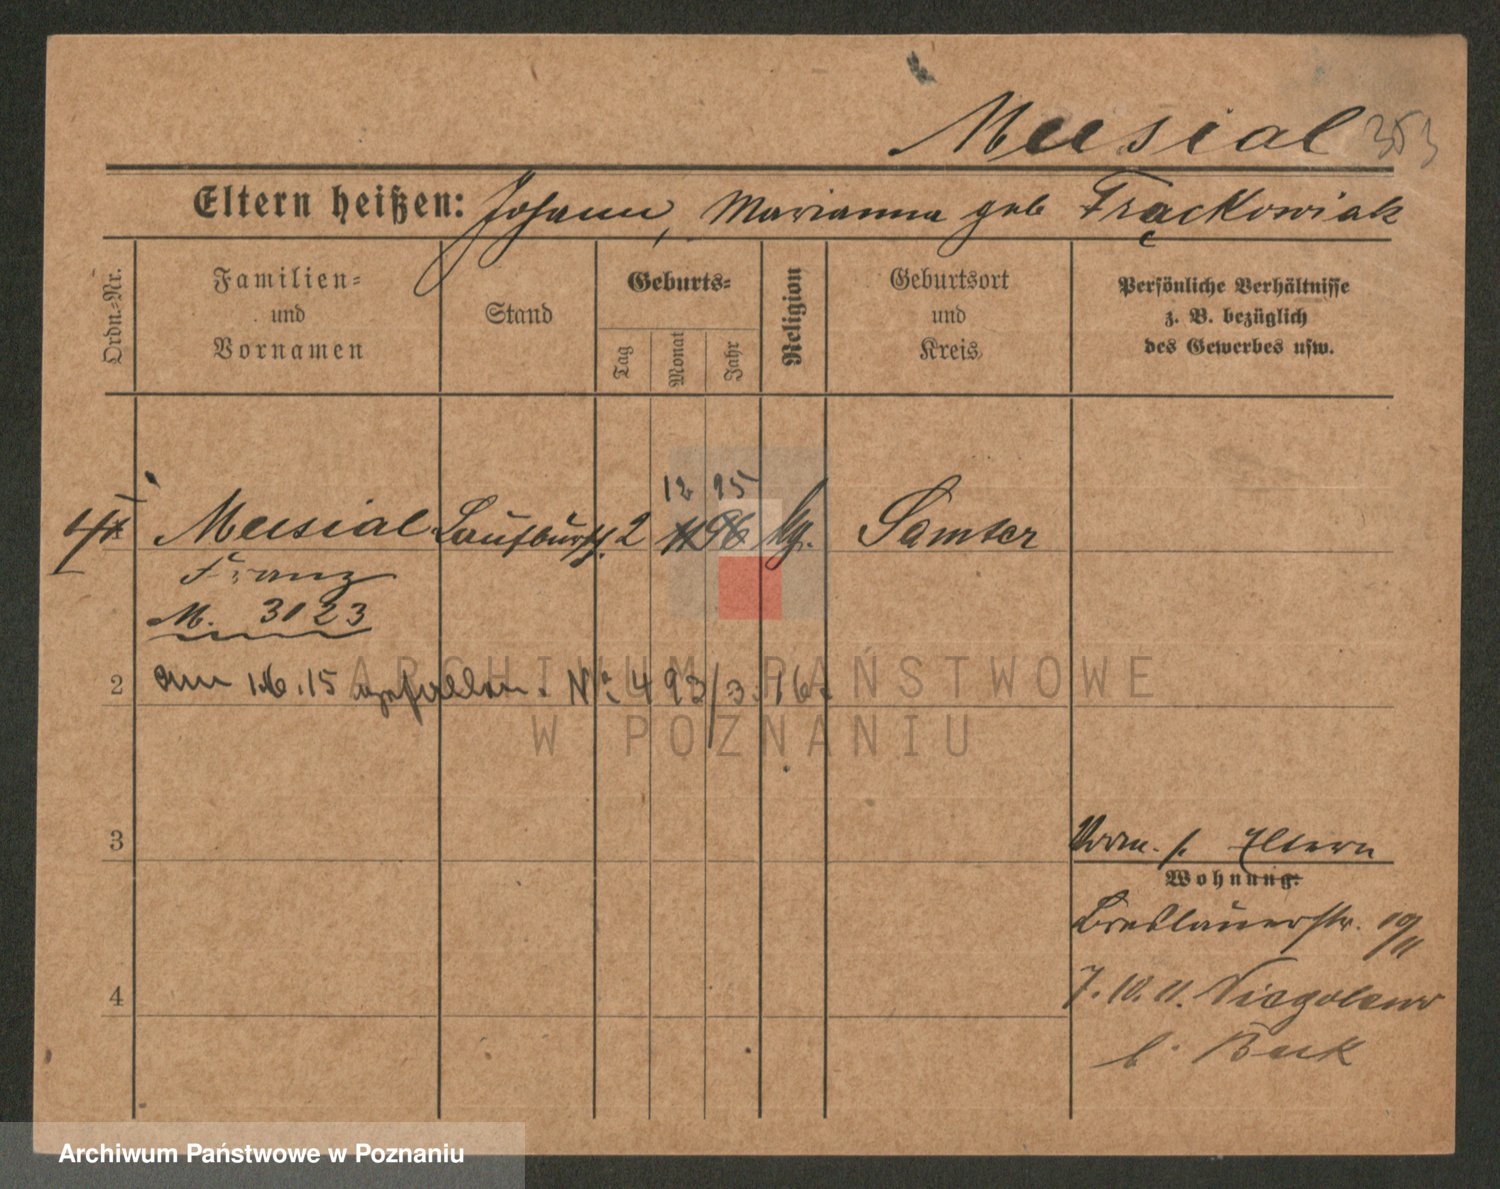 Musial 353
Eltern heißen: Johann, Marianna geb Frąckowiak
Ordn.-Nr.
Familien-
und
Vornamen
Stand
Geburts-
Tag
Monat
Jahr
Religion
Geburtsort
und
Kreis
Persönliche Verhältnisse
z. B. bezüglich
des Gewerbes usw.
12 95
Musial Laufbursch. 2 11 96 kg. Samter
Franz
M. 3023
2 am 1.6.15 gefallen. No. 493/3. 16.
ARCHIWUM PAŃSTWOWE
W POZNANIU
3
Vorm. s. Eltern
Wohnung:
Breslauerstr. 19/II
4
7.10.11. Niegolewo
b. Buk
Archiwum Państwowe w Poznaniu